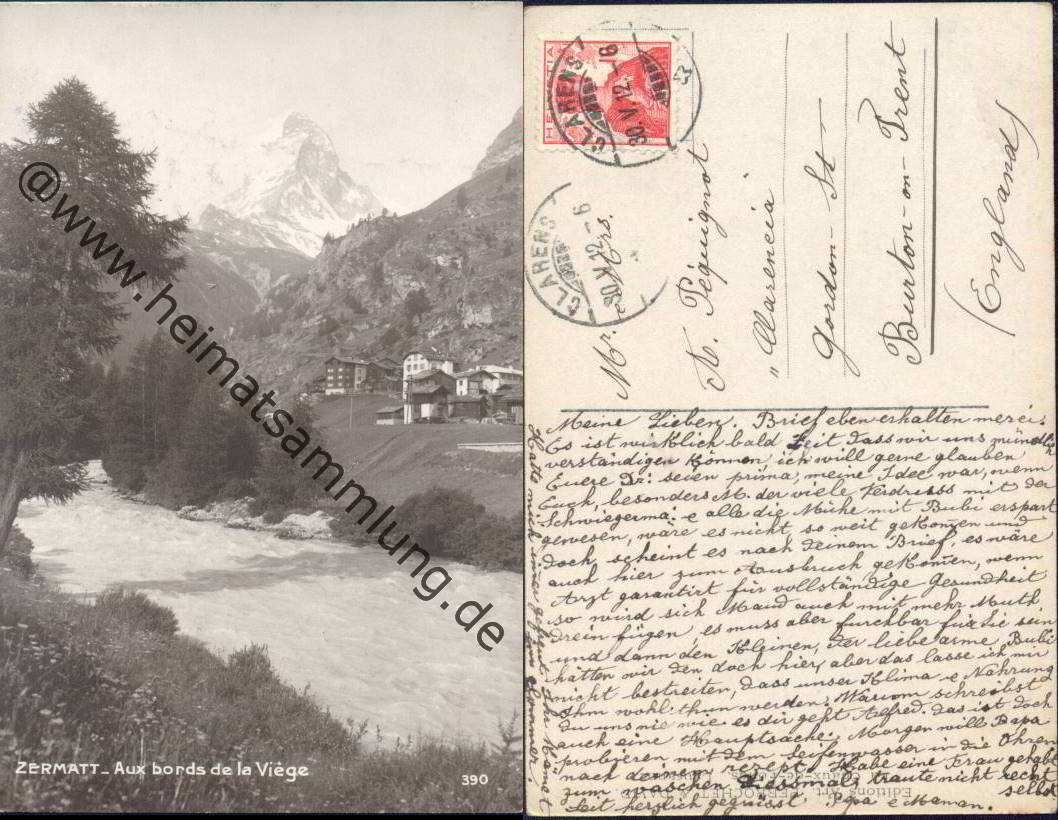 @www.heimatsammlung.de
ZERMATT_ Aux bords de la Viège
390
HELVETIA
CLARENS
30.V.12.-6
CLARENS
30.V.12.-6
Mr. Mrs.
A. Péquignot
"Clarencia
Gordon-St
Burton-on-Trent
(England)
Meine Lieben. Brief eben erhalten merci.
Es ist wirklich bald Zeit dass wir uns mündlich
verständigen können, ich will gerne glauben
Euere Dr: seien prima, meine Idee war, wenn
Euch, besonders M. der viele Verdruss mit der
Schwiegerma: e alle die Mühe mit Bubi erspart
gewesen, wäre es nicht so weit gekommen und
doch, scheint es nach deinem Brief, es wäre
auch hier zum Ausbruch gekommen, wenn
Arzt garantirt für vollständige Gesundheit
so wird sich Maud auch mit mehr Muth
drein fügen, es muss aber furchbar für Sie sein
und dann den Kleinen, der liebe arme Bubi
hätten wir den doch hier, aber das lasse ich mir
nicht bestreiten, dass unser Klima e Nahrung
Ihm wohl thun werden. Warum schreibst
du uns nie wie es dir geht Alfred. das ist doch
auch eine Hauptsache. Morgen will Papa
probieren mit dem Seifenwasser in die Ohren
nach deinem rezept. Habe eine Frau gehabt
zum waschen diesmal, traute nicht recht
selbst
Seit herzlich gegrüsst. Papa e Maman.
Editions Art.
Chaux-de-Fonds